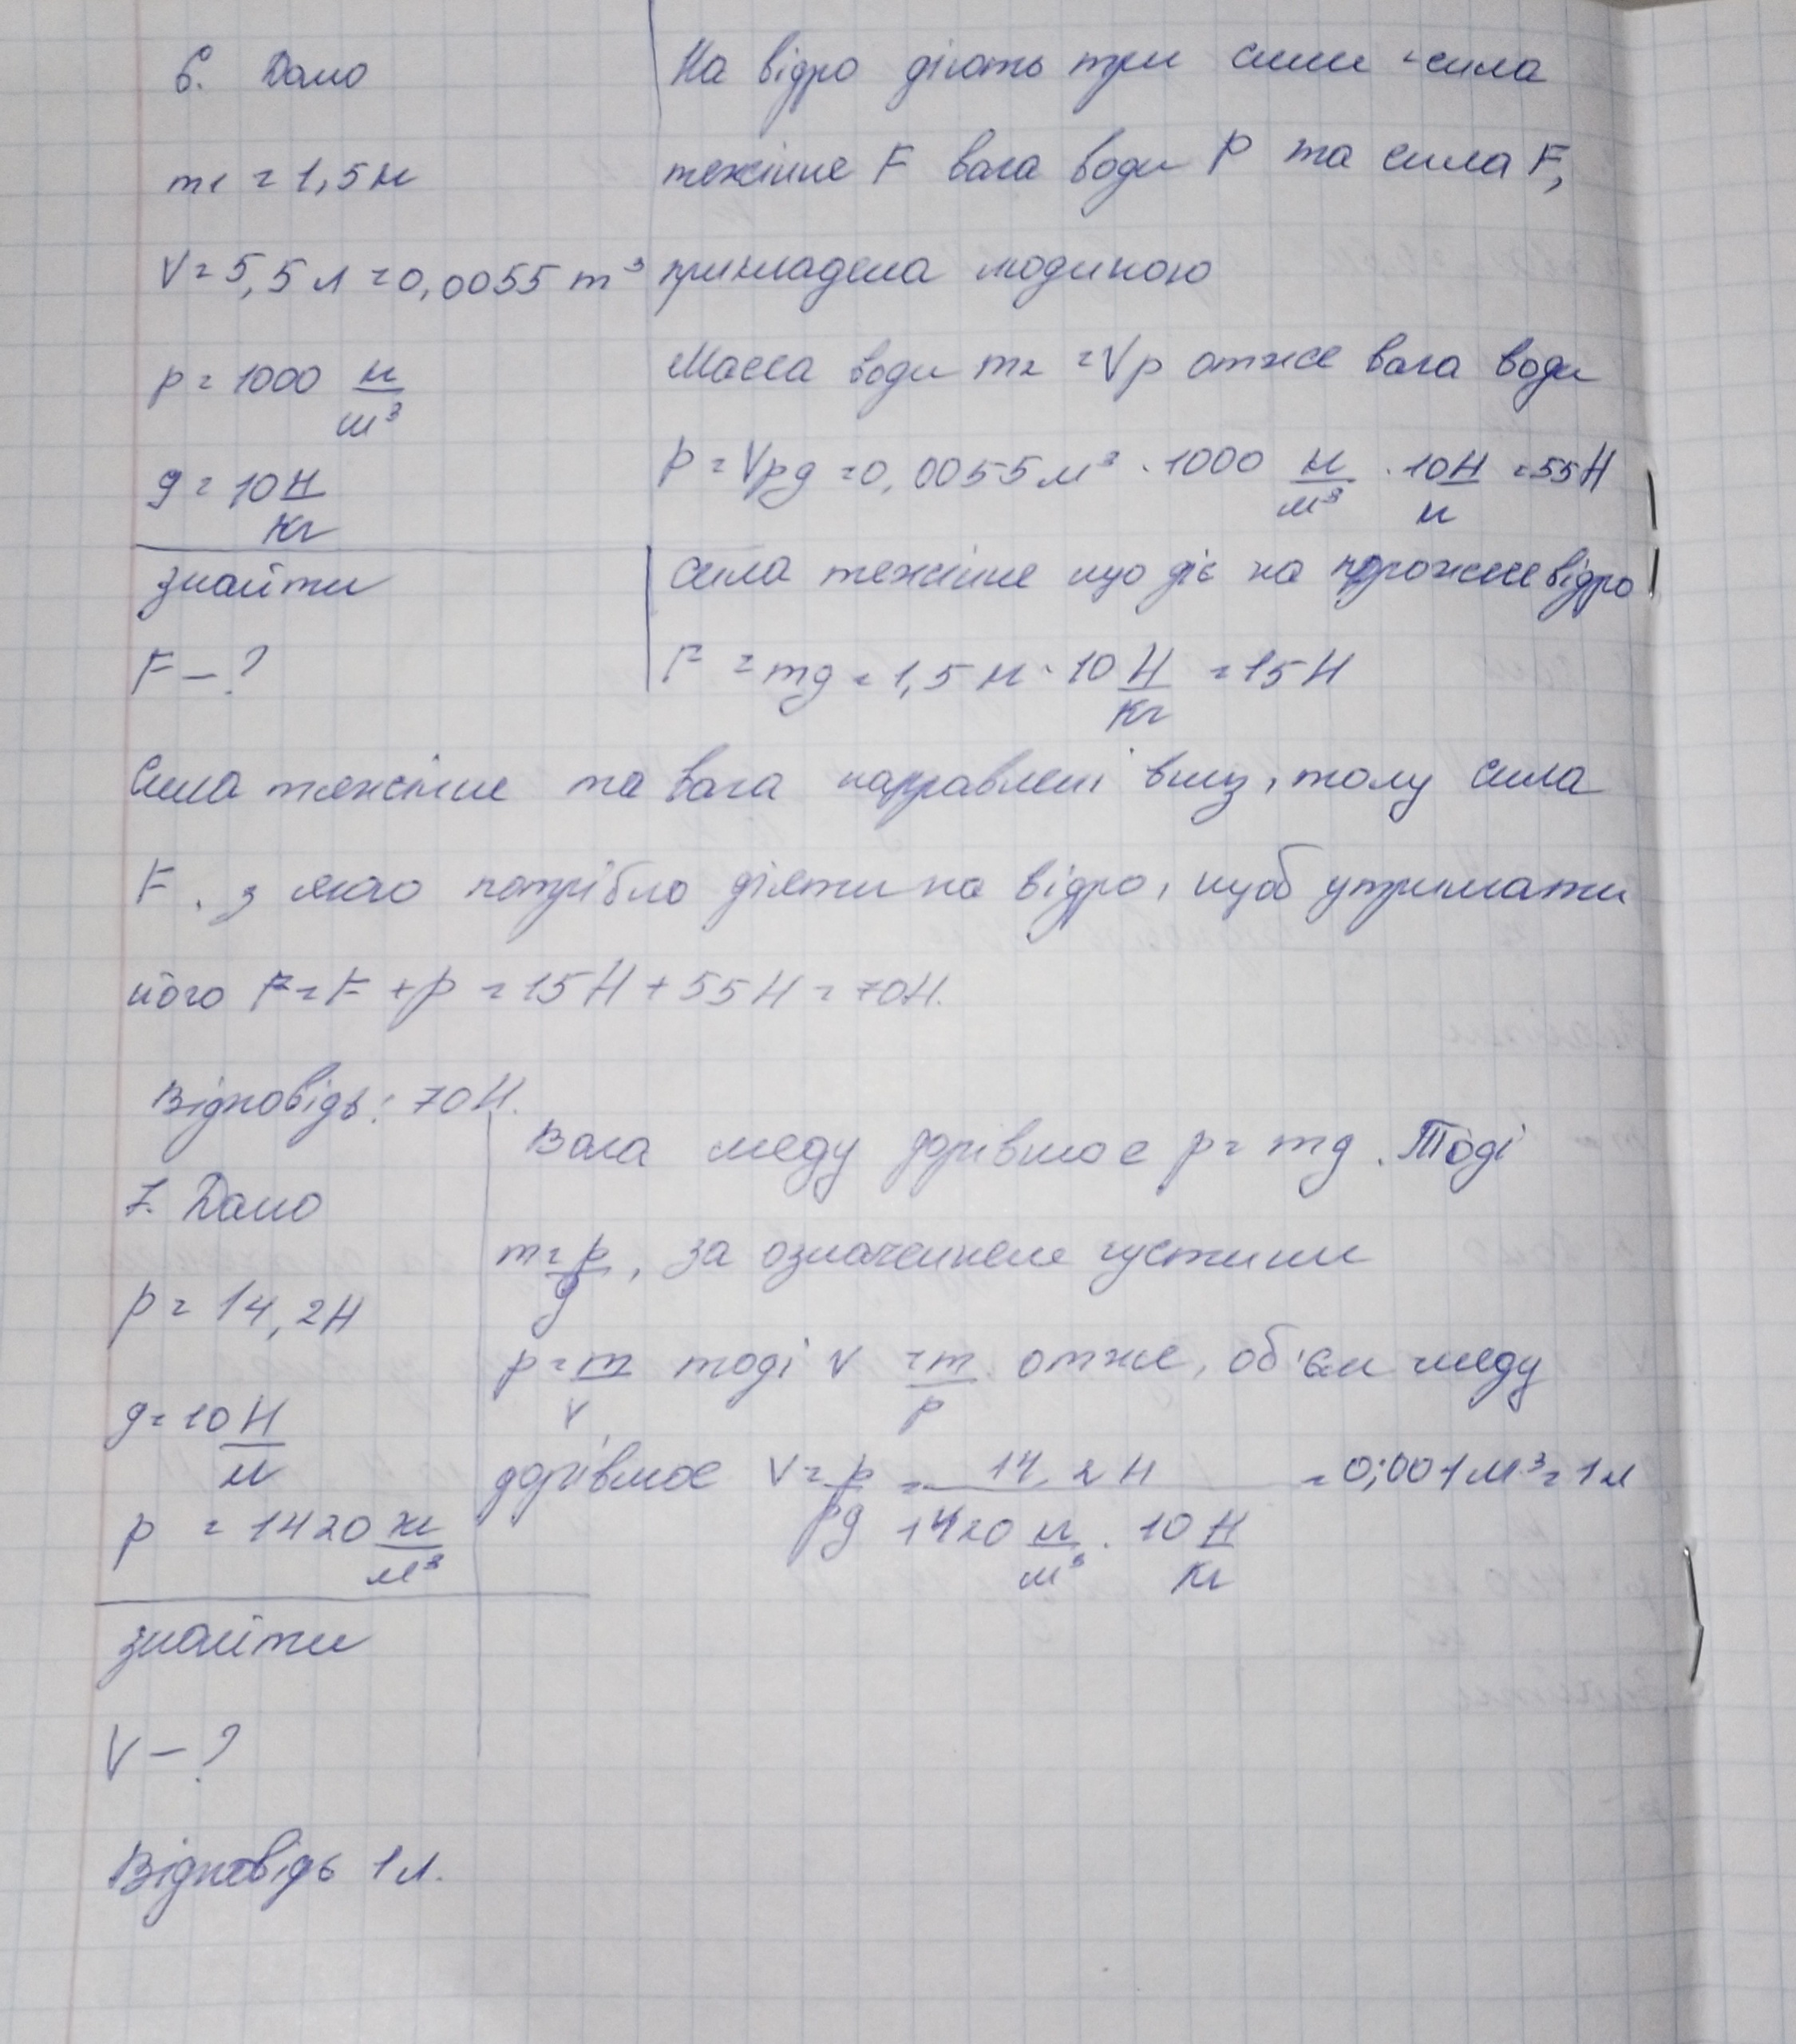 6. Дано
m1 = 1,5 кг
V = 5,5 л = 0,0055 m³
p = 1000 кг/м³
g = 10 Н/кг
знайти
F – ?
На відро діють три сили - сила
тяжіння F вага води P та сила F,
прикладена людиною
Масса води m2 = Vp отже вага води
P = Vpg = 0,0055 м³ · 1000 кг/м³ · 10 Н/кг = 55 Н
Сила тяжіння що діє на порожнє відро
F = mg = 1,5 кг · 10 Н/кг = 15 Н
Сила тяжіння та вага направлені вниз, тому сила
F, з якою потрібно діяти на відро, щоб утримати
його F = F + p = 15 Н + 55 Н = 70 Н.
Відповідь: 70 Н.
7. Дано
p = 14,2 Н
g = 10 Н/кг
p = 1420 кг/м³
знайти
V – ?
Вага меду дорівнює p = mg. Тоді
m = p/g, за означенням густини
p = m/v тоді v = m/p отже, об'єм меду
дорівнює V = p/pg = 14,2 Н / 1420 кг/м³ · 10 Н/кг = 0,001 м³ = 1 л
Відповідь 1 л.